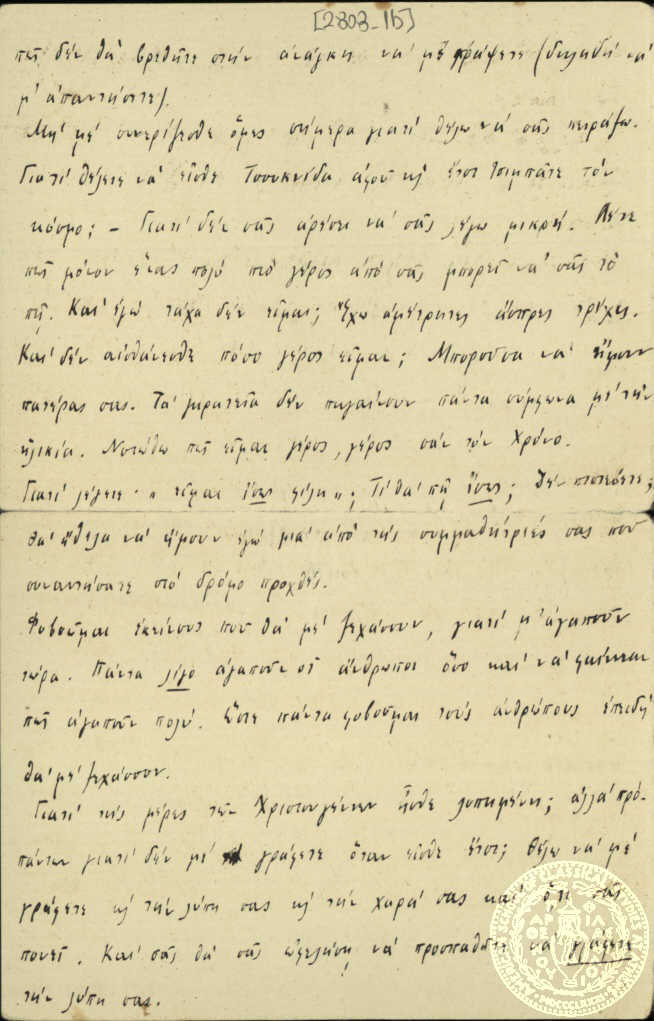 [2803-1b]
πῶς δὲν θὰ βρεθῆτε στὴν ἀνάγκη νὰ μὲ γράψετε (δηλαδὴ νὰ
μ' ἀπαντήσετε).
Μὴ μὲ συνερίζεσθε ὅμως σήμερα γιατὶ θέλω νὰ σᾶς πειράξω.
Γιατὶ θέλετε νὰ εἶσθε Τσουκνίδα ἀφοῦ κι ἔτσι τσιμπᾶτε τὸν
κόσμο; – Γιατὶ δὲν σᾶς ἀρέσει νὰ σᾶς λέγω μικρή. Λέτε
πῶς μόνον ἕνας πολὺ πιὸ γέρος ἀπὸ σᾶς μπορεῖ νὰ σᾶς τὸ
πῇ. Καὶ ἐγὼ τάχα δὲν εἶμαι; Ἔχω ἀμέτρητες ἄσπρες τρίχες.
Καὶ δὲν αἰσθάνεσθε πόσο γέρος εἶμαι; Μποροῦσα νὰ ἤμουν
πατέρας σας. Τὰ γηρατεῖα δὲν πηγαίνουν πάντα σύμφωνα μὲ τὴν
ἡλικία. Νοιώθω πῶς εἶμαι γέρος, γέρος σὰν τὸν Χρόνο.
Γιατὶ λέγετε· « εἶμαι ἴσως φίλη »; Τί θὰ πῇ ἴσως; Δὲν πιστεύετε;
θὰ ἤθελα νὰ ἤμουν ἐγὼ μιὰ ἀπὸ τὶς συμμαθήτριές σας ποὺ
συναντήσατε στὸ δρόμο προχθές.
Φοβοῦμαι ἐκείνους ποὺ θὰ μὲ ξεχάσουν, γιατὶ μ' ἀγαποῦν
τώρα. Πάντα λίγο ἀγαποῦν οἱ ἄνθρωποι ὅσο καὶ νὰ φαίνεται
πῶς ἀγαποῦν πολύ. Ὥστε πάντα φοβοῦμαι τοὺς ἀνθρώπους ἐπειδὴ
θὰ μὲ ξεχάσουν.
Γιατὶ τὶς μέρες τῶν Χριστουγέννων ἤσθε λυπημένη; ἀλλὰ πρὸ-
πάντων γιατὶ δὲν μὲ γράφετε ὅταν εἶσθε ἔτσι; Θέλω νὰ μὲ
γράφετε κι τὴν λύπη σας κι τὴν χαρά σας καὶ ὅ,τι σᾶς
πονεῖ. Καὶ σᾶς θὰ σᾶς ὠφελήσῃ νὰ προσπαθῆτε νὰ γράφετε
τὴν λύπη σας.